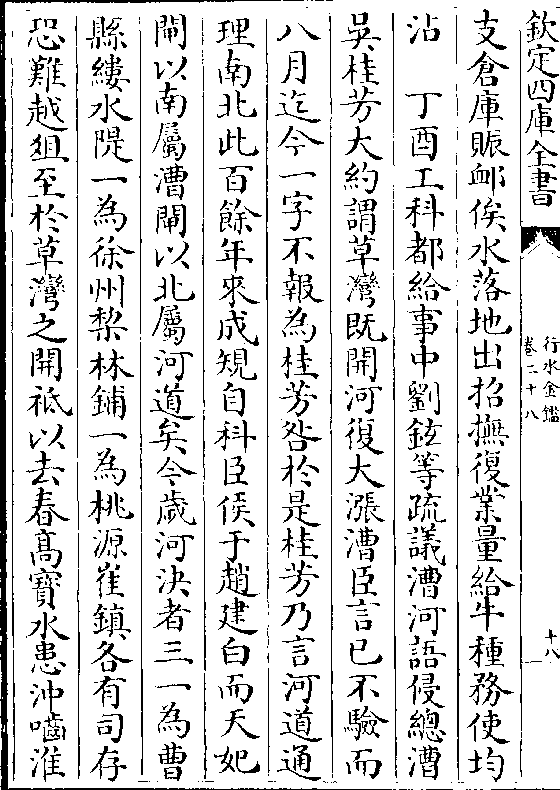 欽定四庫全書
行水金鑑
卷二十八
十八
支倉庫賑卹俟水落地出招撫復業量給牛種務使均
沾　丁酉工科都給事中劉鉉等疏議漕河語侵總漕
吳桂芳大約謂草灣既開河復大漲漕臣言已不驗而
八月迄今一字不報為桂芳咎於是桂芳乃言河道通
理南北此百餘年來成規自科臣侯于趙建白而天妃
閘以南屬漕閘以北屬河道矣今歲河決者三一為曹
縣縷水隄一為徐州棃林鋪一為桃源崔鎮各有司存
恐難越俎至於草灣之開祗以去春髙寳水患沖囓淮